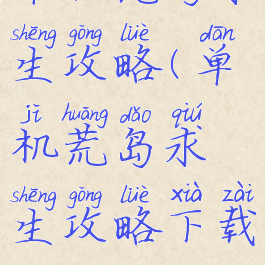 shēng gōng lüè dān
生攻略(单
jī huāng dǎo qiú
机荒岛求
shēng gōng lüè xià zài
生攻略下载